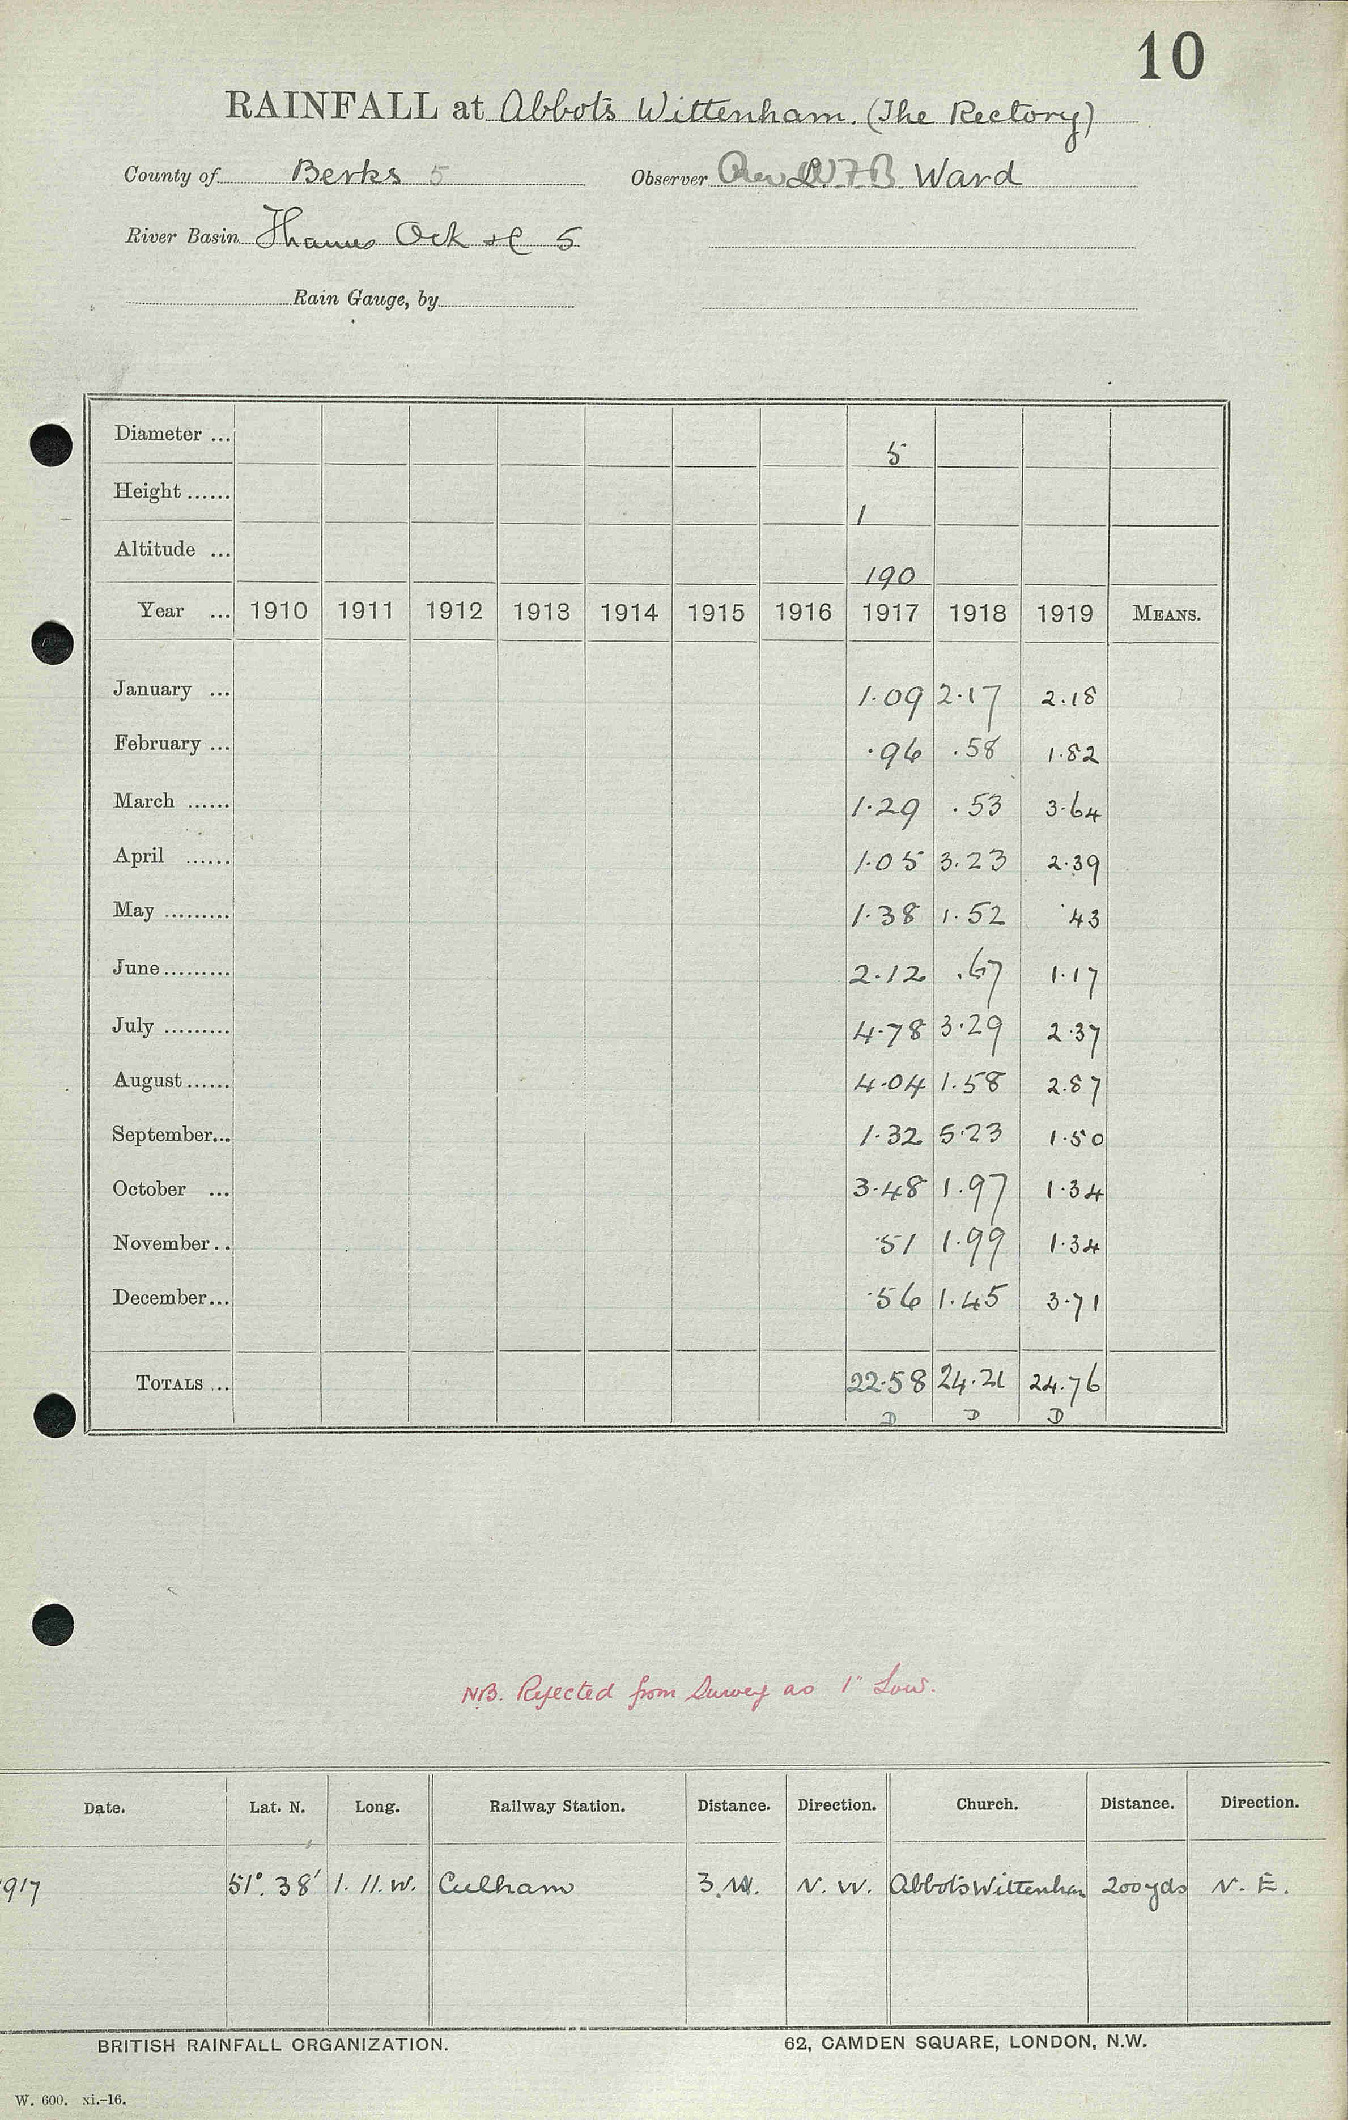 10
RAINFALL at Abbots Wittenham. (The Rectory)
County of Berks 5 Observer Rev W F B Ward
River Basin Thames Ock &c 5
Rain Gauge, by
Diameter ... 5
Height ...... 1
Altitude ... 190
Year ... 1910 1911 1912 1913 1914 1915 1916 1917 1918 1919 MEANS.
January ... 1.09 2.17 2.18
February ... .96 .58 1.82
March ...... 1.29 .53 3.64
April ...... 1.05 3.23 2.39
May ......... 1.38 1.52 .43
June ......... 2.12 .67 1.17
July ......... 4.78 3.29 2.37
August ...... 4.04 1.58 2.87
September... 1.32 5.23 1.50
October ... 3.48 1.97 1.34
November.. .51 1.99 1.34
December... .56 1.45 3.71
TOTALS ... 22.58 24.21 24.76
D D D
NB. Rejected from Survey as 1" Low.
Date. Lat. N. Long. Railway Station. Distance. Direction. Church. Distance. Direction.
917 51°. 38' 1. 11. W. Culham 3 M. N. W. Abbots Wittenham 200 yds N. E.
BRITISH RAINFALL ORGANIZATION. 62, CAMDEN SQUARE, LONDON, N.W.
W. 600. xi.-16.